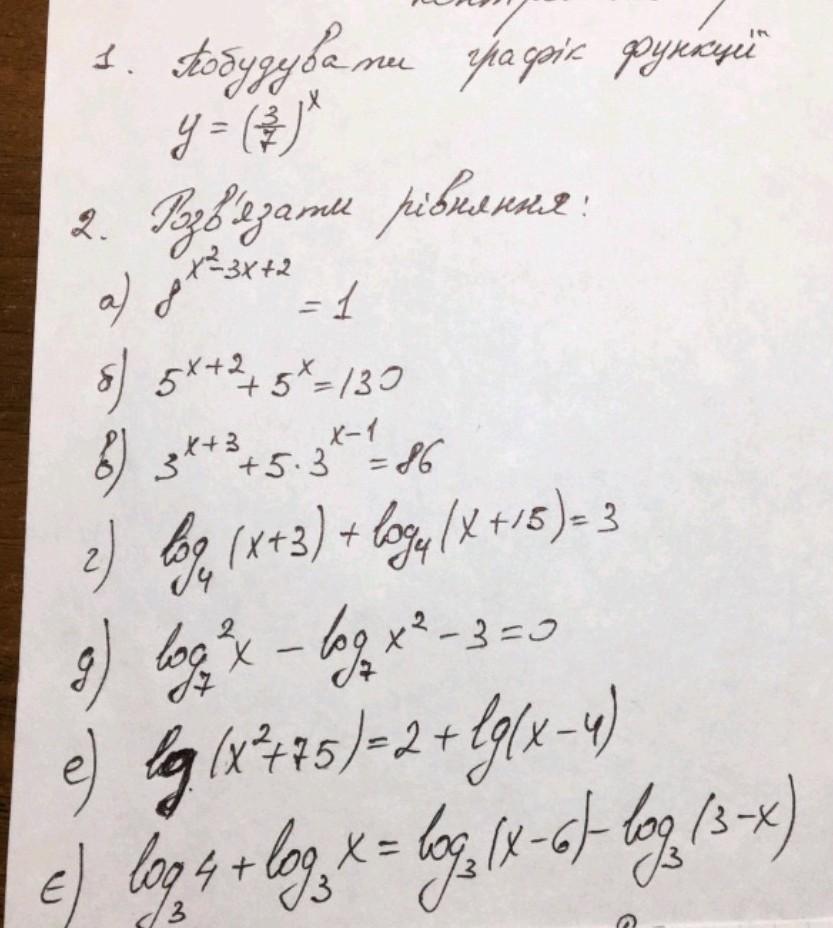 1. Побудувати графік функції
y = (3/7)^x
2. Розв'язати рівняння:
а) 8^(x²-3x+2) = 1
б) 5^(x+2) + 5^x = 130
в) 3^(x+3) + 5·3^(x-1) = 86
г) log₄(x+3) + log₄(x+15) = 3
д) log₇²x - log₇x² - 3 = 0
е) lg(x²+75) = 2 + lg(x-4)
є) log₃4 + log₃x = log₃(x-6) - log₃(3-x)